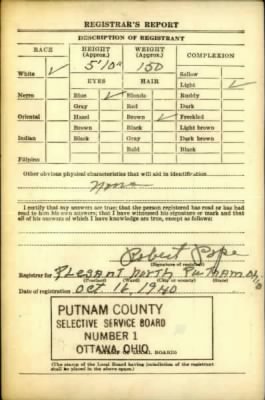 REGISTRAR'S REPORT
DESCRIPTION OF REGISTRANT
RACE HEIGHT (Approx.) WEIGHT (Approx.) COMPLEXION
5'10" 150
White ✓ EYES HAIR Sallow
Light ✓
Negro Blue ✓ Blonde Ruddy
Gray Red Dark
Oriental Hazel Brown ✓ Freckled
Brown Black Light brown
Indian Black Gray Dark brown
Bald Black
Filipino
Other obvious physical characteristics that will aid in identification
None
I certify that my answers are true; that the person registered has read or has had
read to him his own answers; that I have witnessed his signature or mark and that
all of his answers of which I have knowledge are true, except as follows:
Robert Pope
(Signature of registrar)
Registrar for PLESANT NORTH PUTNAM
(Precinct) (Ward) (City or county)
Date of registration OCT. 16, 1940
PUTNAM COUNTY
SELECTIVE SERVICE BOARD
NUMBER 1
OTTAWA, OHIO
LOCAL BOARD)
(The stamp of the Local Board having jurisdiction of the registrant
shall be placed in the above space.)